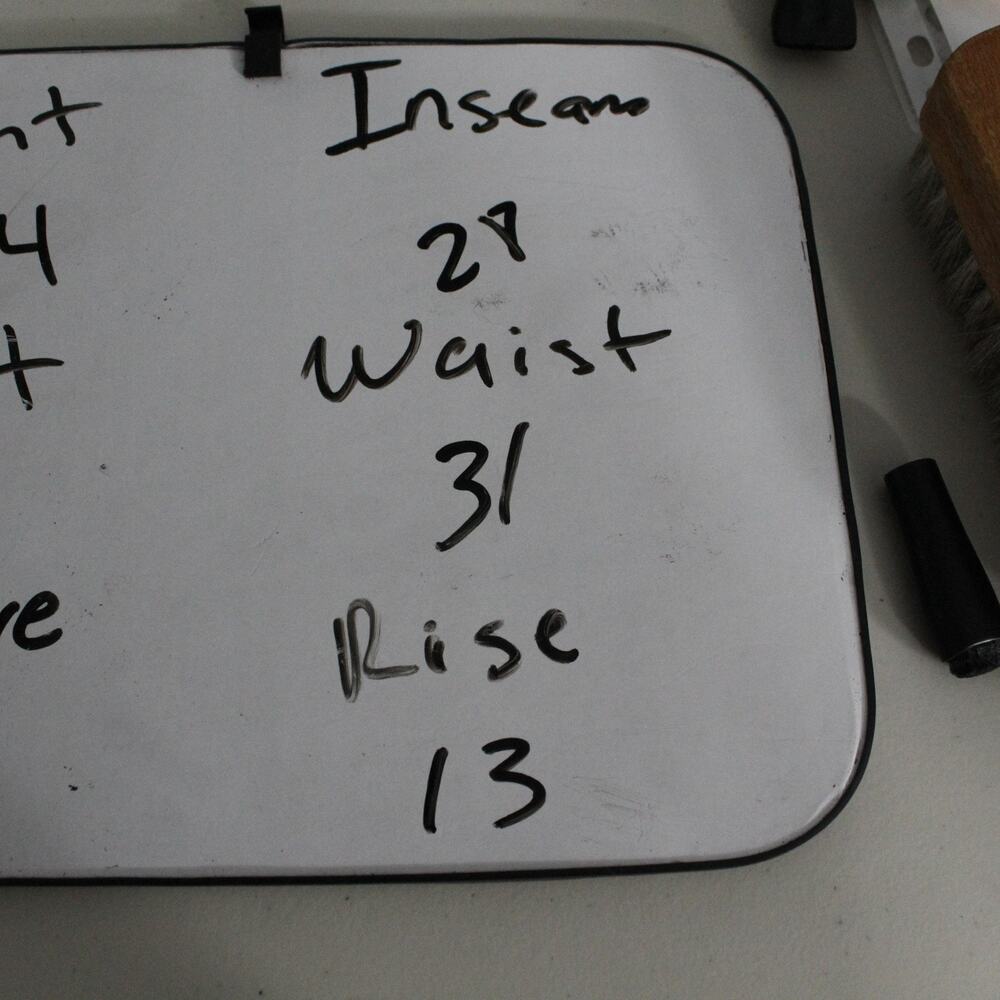 nt Inseam
4
t Waist
31
ve Rise
13